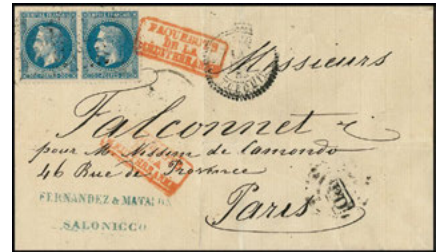 PAQUEBOTS
DE LA
MÉDITERRANÉE
Messieurs
Falconnet
pour M. Nissim de Camondo
46 Rue de Provence
Paris
PD
FERNANDEZ &
SALONICCO